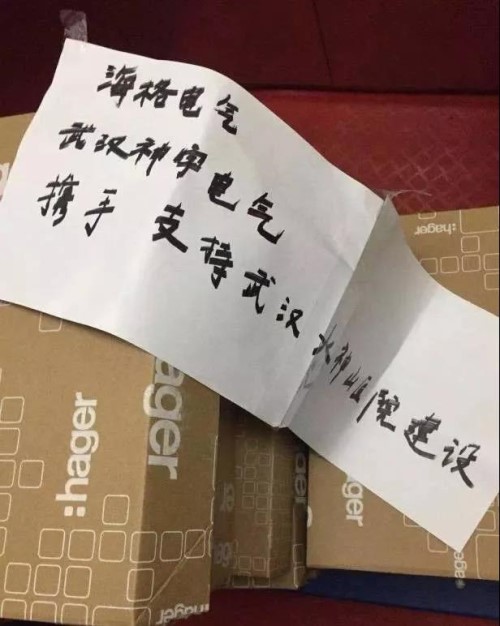 海格电气
武汉神宇电气
携手 支持武汉火神山医院建设
:hager
:hager
:hager
hager
:hager
hager